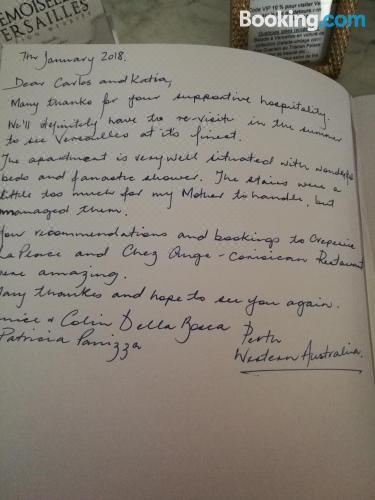 EMOISELLES
ERSAILLES
Booking.com
7th January 2018.
Dear Carlos and Katia,
Many thanks for your supportive hospitality.
We'll definitely have to re-visit in the summer
to see Versailles at its finest.
The apartment is very well situated with wonderful
beds and fanastic shower. The stairs were a
little too much for my Mother to handle, but
managed them.
Your recommendations and bookings to Creperie
La Place and Chez Ange - Corsican Restaurant
were amazing.
Many thankes and hope to see you again.
& Colin Della Bosca Perth
Patricia Panizza Western Australia.